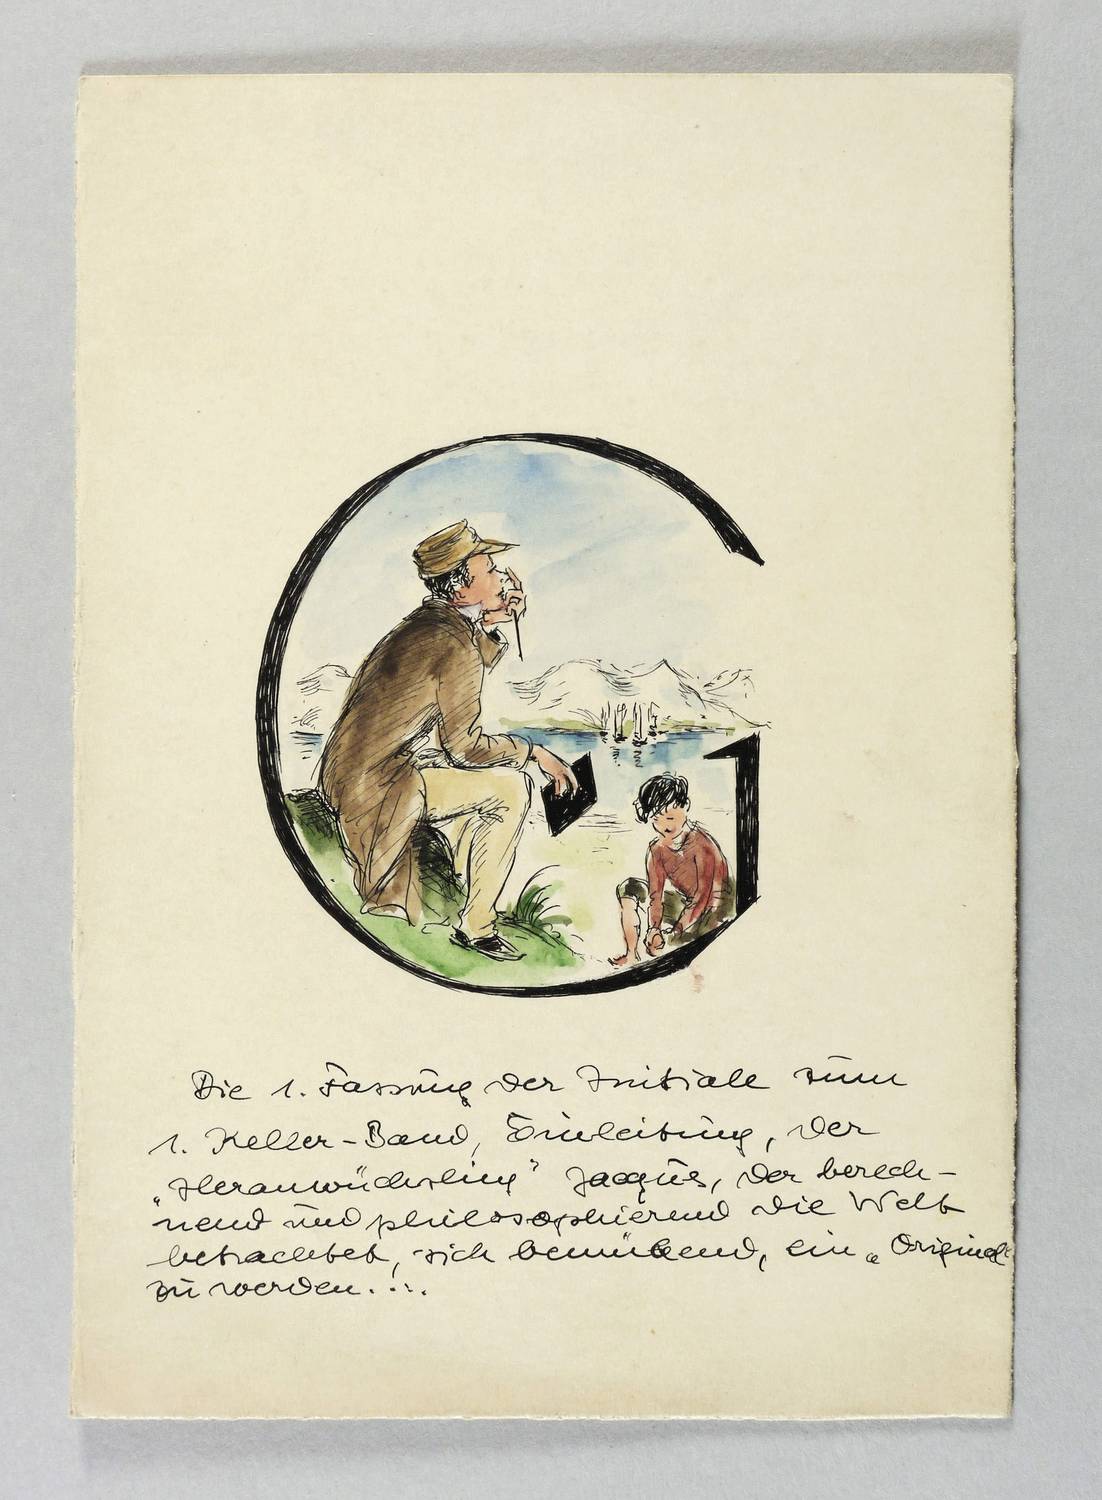 G
Die 1. Fassung der Initiale zum
1. Keller-Band, Einleitung, der
"Heranwüchsling" Jacques, der berech-
nend und philosophierend die Welt
betrachtet, sich bemühend, ein „Original"
zu werden...